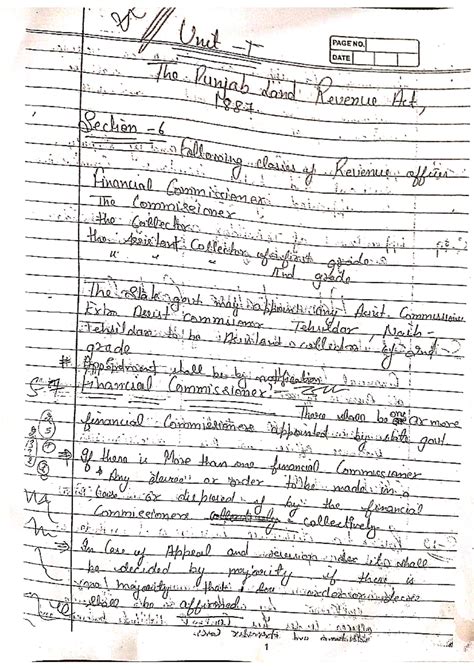 Unit - I
PAGE NO.
DATE
The Punjab Land Revenue Act,
1887
Section - 6
Following classes of Revenue officer
Financial Commissioner
The Commissioner
the Collector
the Assistant Collector of first grade
" " " IInd grade
The State govt may appoint any Asist. Commissioner
Extra Assist Commissioner Tehsildar, Naib-
Tehsildar to be Assistant collector of 2nd
grade
# Appointment shall be by notification
S-7 Financial Commissioner:
There shall be one or more
financial Commissioners appointed by state govt
⇒ If there is More than one financial Commissioner
Any decree or order to be made in a
case or disposed of by the financial
Commissioners collectively.
⇒ In Case of Appeal and revision it shall
be decided by majority if there is
no majority that order or decree
shall be affirmed
1